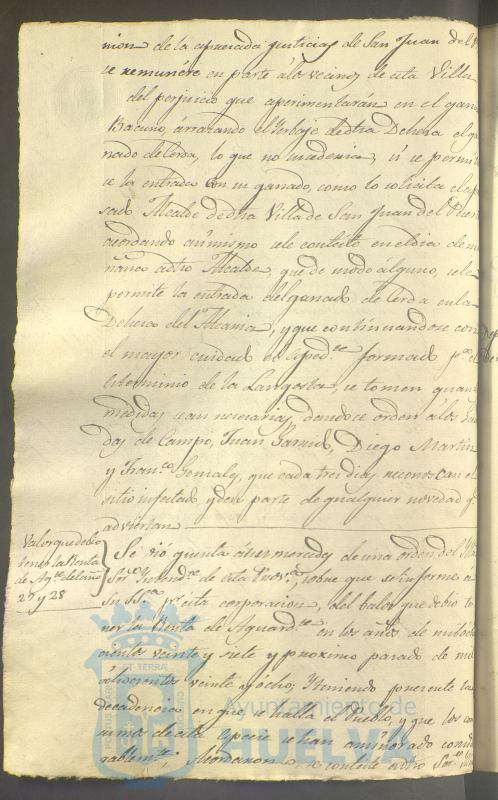 nion de la apreciada justicias de San Juan del P
se remunére en parte á los vecinos de esta Villa
del perjuicio que esperimentarán en el gana
Bacuno, árrazando el Yerbaje de dha Dehesa el ga
nado de Cerda, lo que no sucederia, si se permi
se la entrada con su ganado, como lo solicita el
sado Alcalde de dha Villa de San Juan del Puer
acordando asimismo se le conteste en el dia de ma
ñana a dho Alcalde, que de modo álguno, se le
permite la entrada del ganado de Cerda en la
Dehesa del Alcaria, y que continuandose con
el mayor cuidado el esped.te formado p.a el
esterminio de la Langosta, se tomen quantas
medidas sean necesarias, dandose orden á los Gua
das de Campo, Juan Garrido, Diego Martin
y Fran.co Gonzalez, que cada tres dias reconozcan el
sitio infestado, y den parte de qualquier novedad q.e
adviertan
Valor que debio
tener la Renta
de Ag.te el año
27 y 28
Se vió quinta
de una orden del
Sor. Intend.te de esta Prov.a, sobre que se informe á
Su SS.a por esta corporacion, del balor que debio te
ner la Renta de Aguard.te en los años de mil ocho
cientos veinte y siete y proximo pasado de mil
ochocientos veinte y ócho; Y teniendo presente la
decadencia en que se halla el Pueblo, y que los con
sumos de esta especie se han aminorado consid
rablem.te; Acordaron, se conteste a dho Sor.
PORTUS MARIS ET TERRAE CUSTODIA
Ayuntamiento de
HUELVA